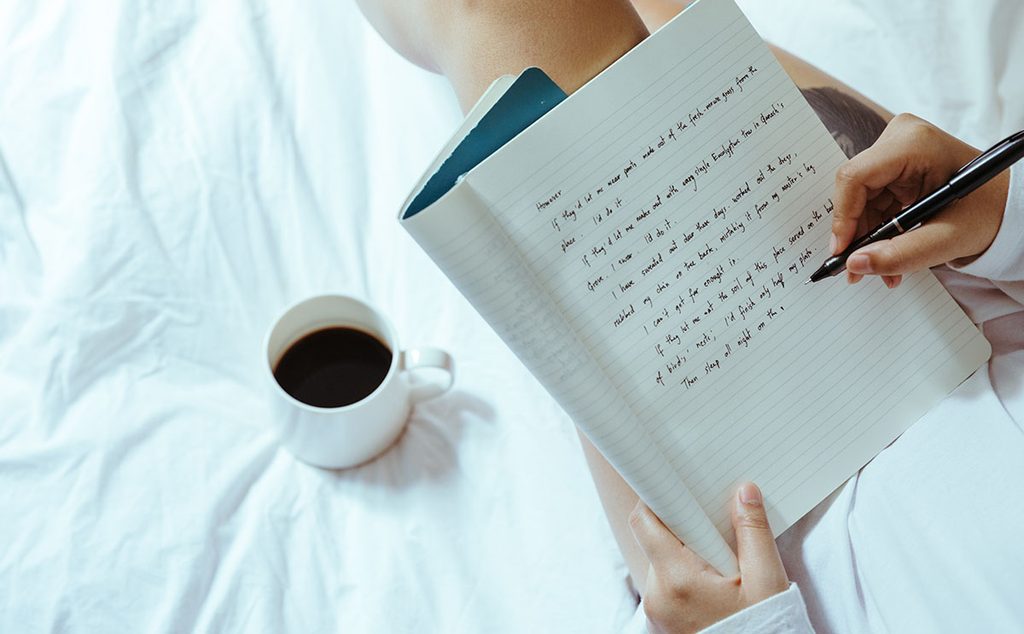 However
If they'd let me wear pants made out of the fresh-woven grass from the
place. I'd do it.
If they'd let me make out with every single Eucalyptus tree in Ganesh's
Grove, I swear, I'd do it.
I have sweated out dew these days, worked out the dregs,
rubbed my chin on the bark, mistaking it for my master's leg
I can't get far enough in.
If they let me eat the soil of this place served on the bed
of birds' nests; I'd finish only half my plate.
Then sleep all night on the